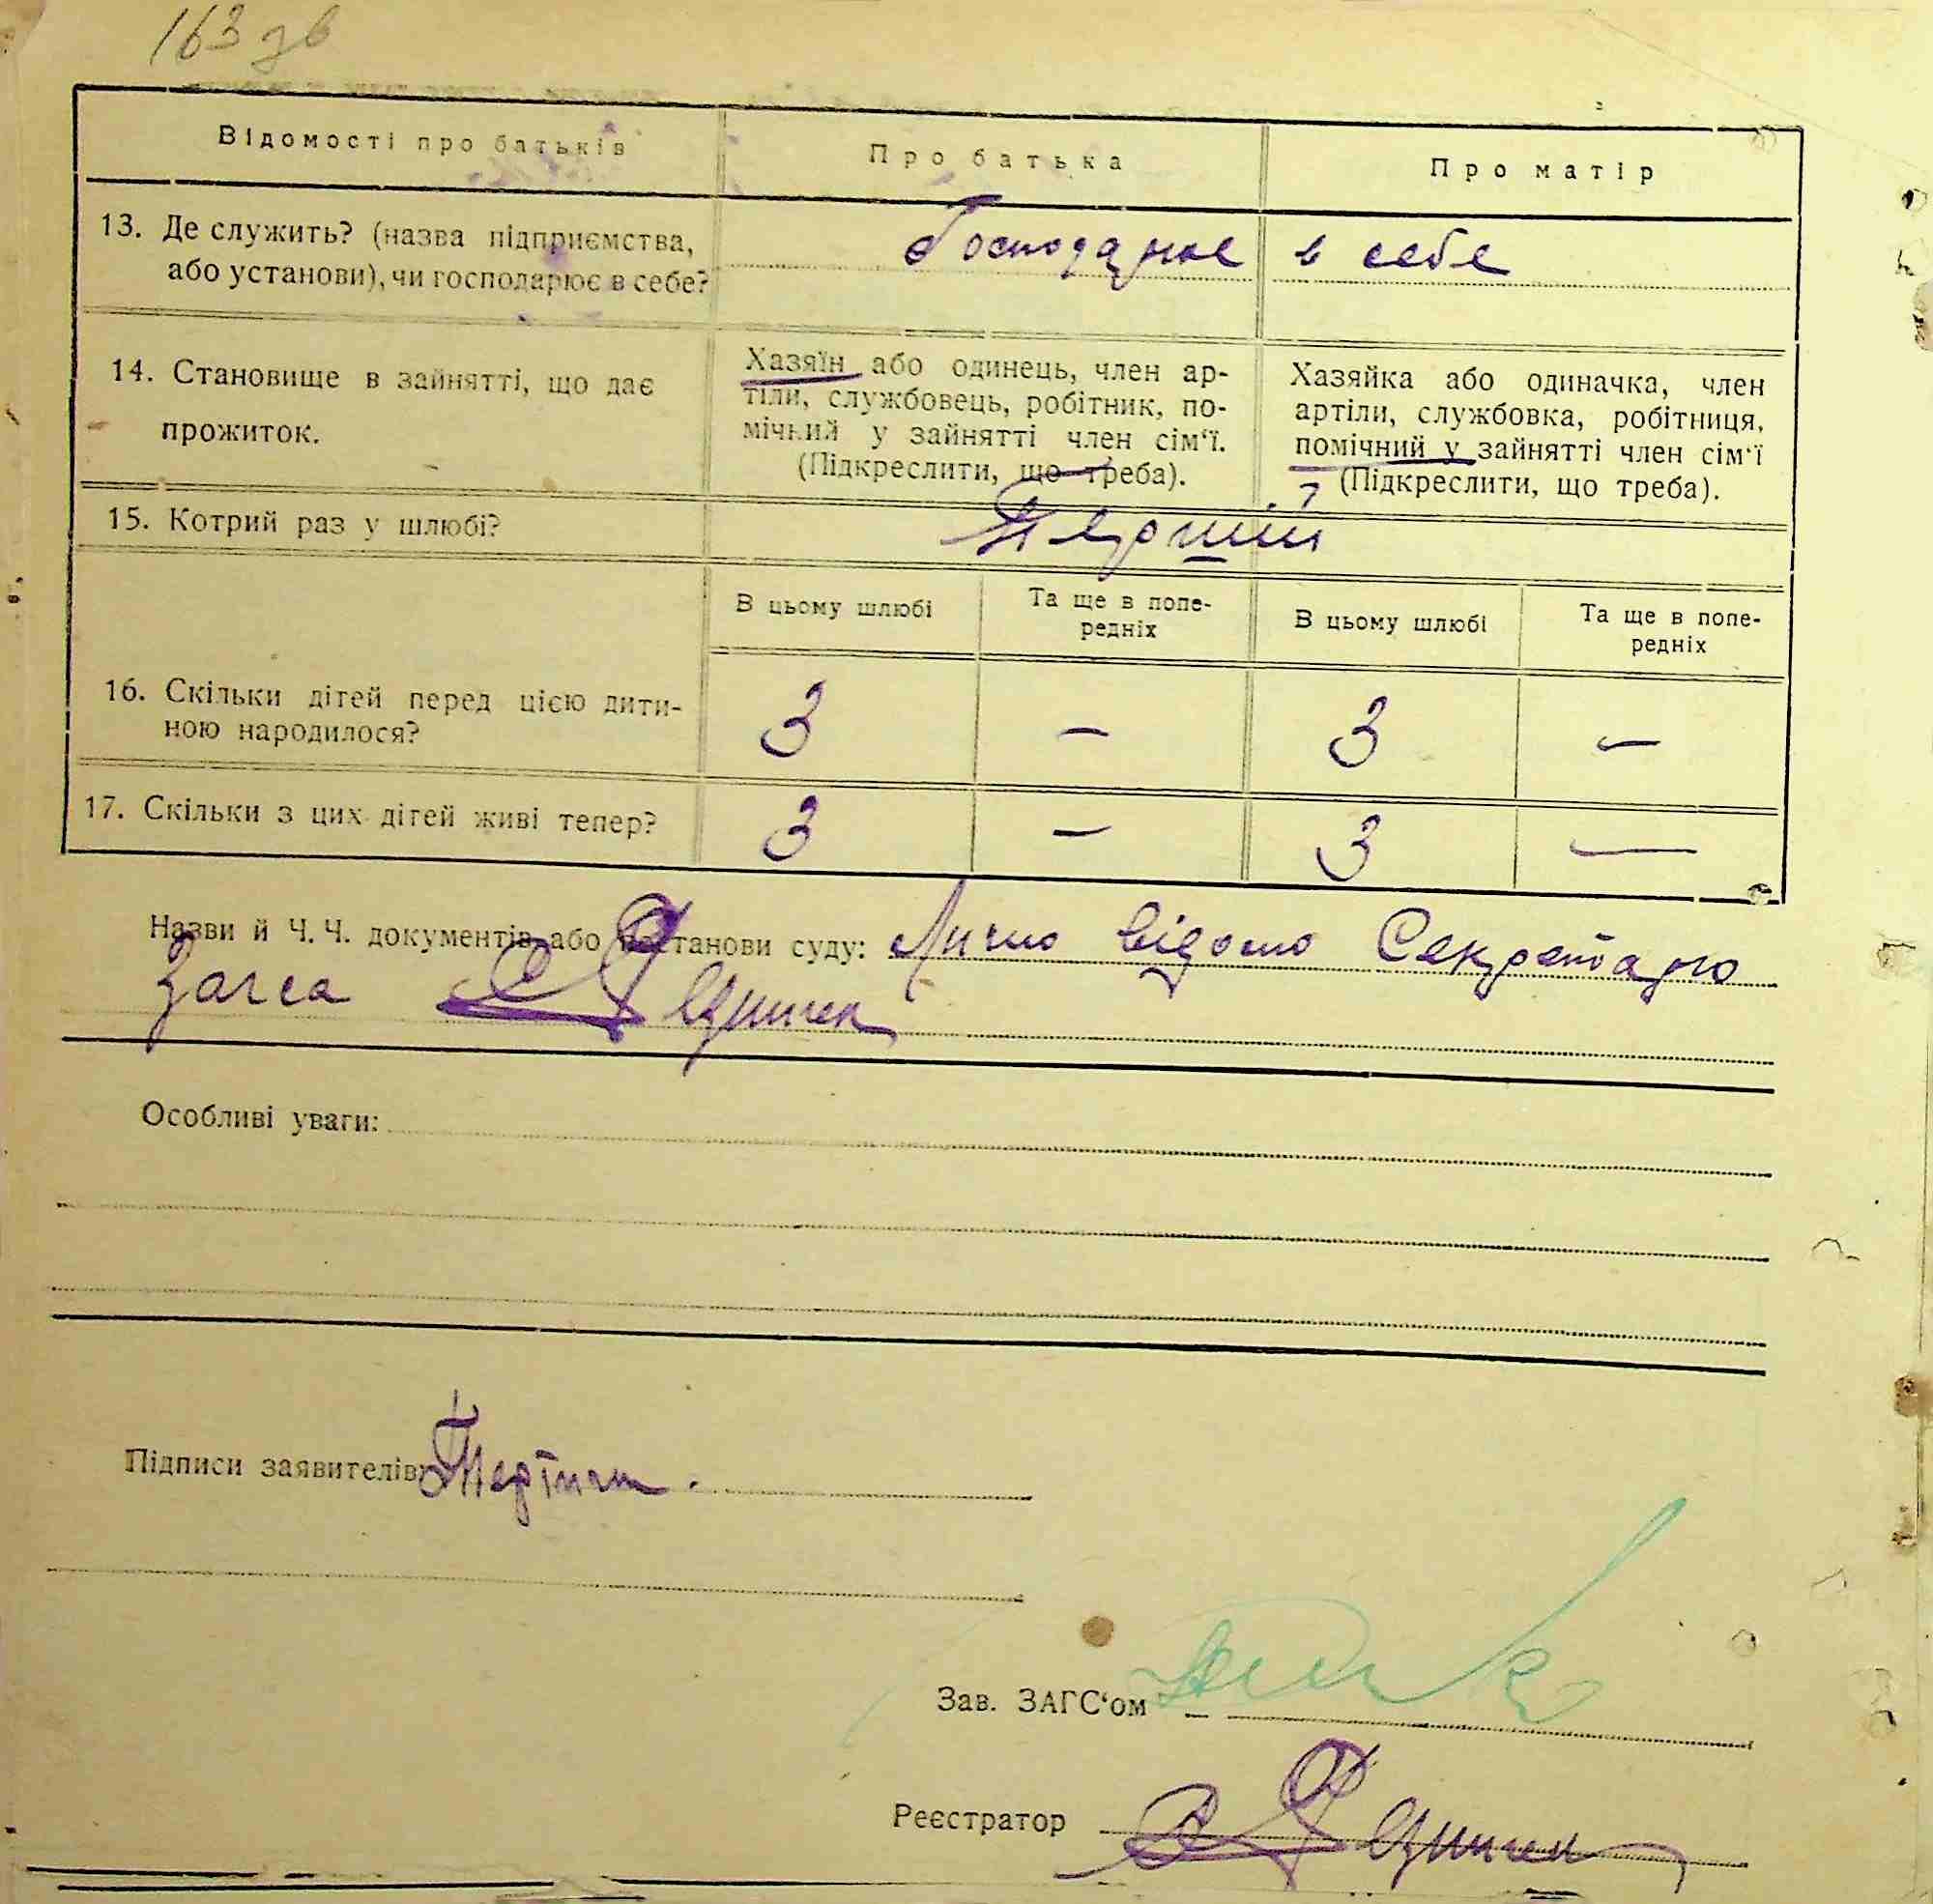 163 зв
Відомості про батьків
Про батька
Про матір
13. Де служить? (назва підприємства,
або установи), чи господарює в себе?
Господарює в себе
14. Становище в зайнятті, що дає
прожиток.
Хазяїн або одинець, член ар-
тіли, службовець, робітник, по-
мічний у зайнятті член сім‘ї.
(Підкреслити, що треба).
Хазяйка або одиначка, член
артіли, службовка, робітниця,
помічний у зайнятті член сім‘ї
(Підкреслити, що треба).
15. Котрий раз у шлюбі?
Перший
В цьому шлюбі
Та ще в попе-
редніх
В цьому шлюбі
Та ще в попе-
редніх
16. Скільки дітей перед цією дити-
ною народилося?
3 — 3 —
17. Скільки з цих дітей живі тепер?
3 — 3 —
Назви й Ч. Ч. документів або постанови суду: Лично відомо Секретарю
Загса
Особливі уваги:
Підписи заявителів:
Зав. ЗАГС‘ом
Реєстратор